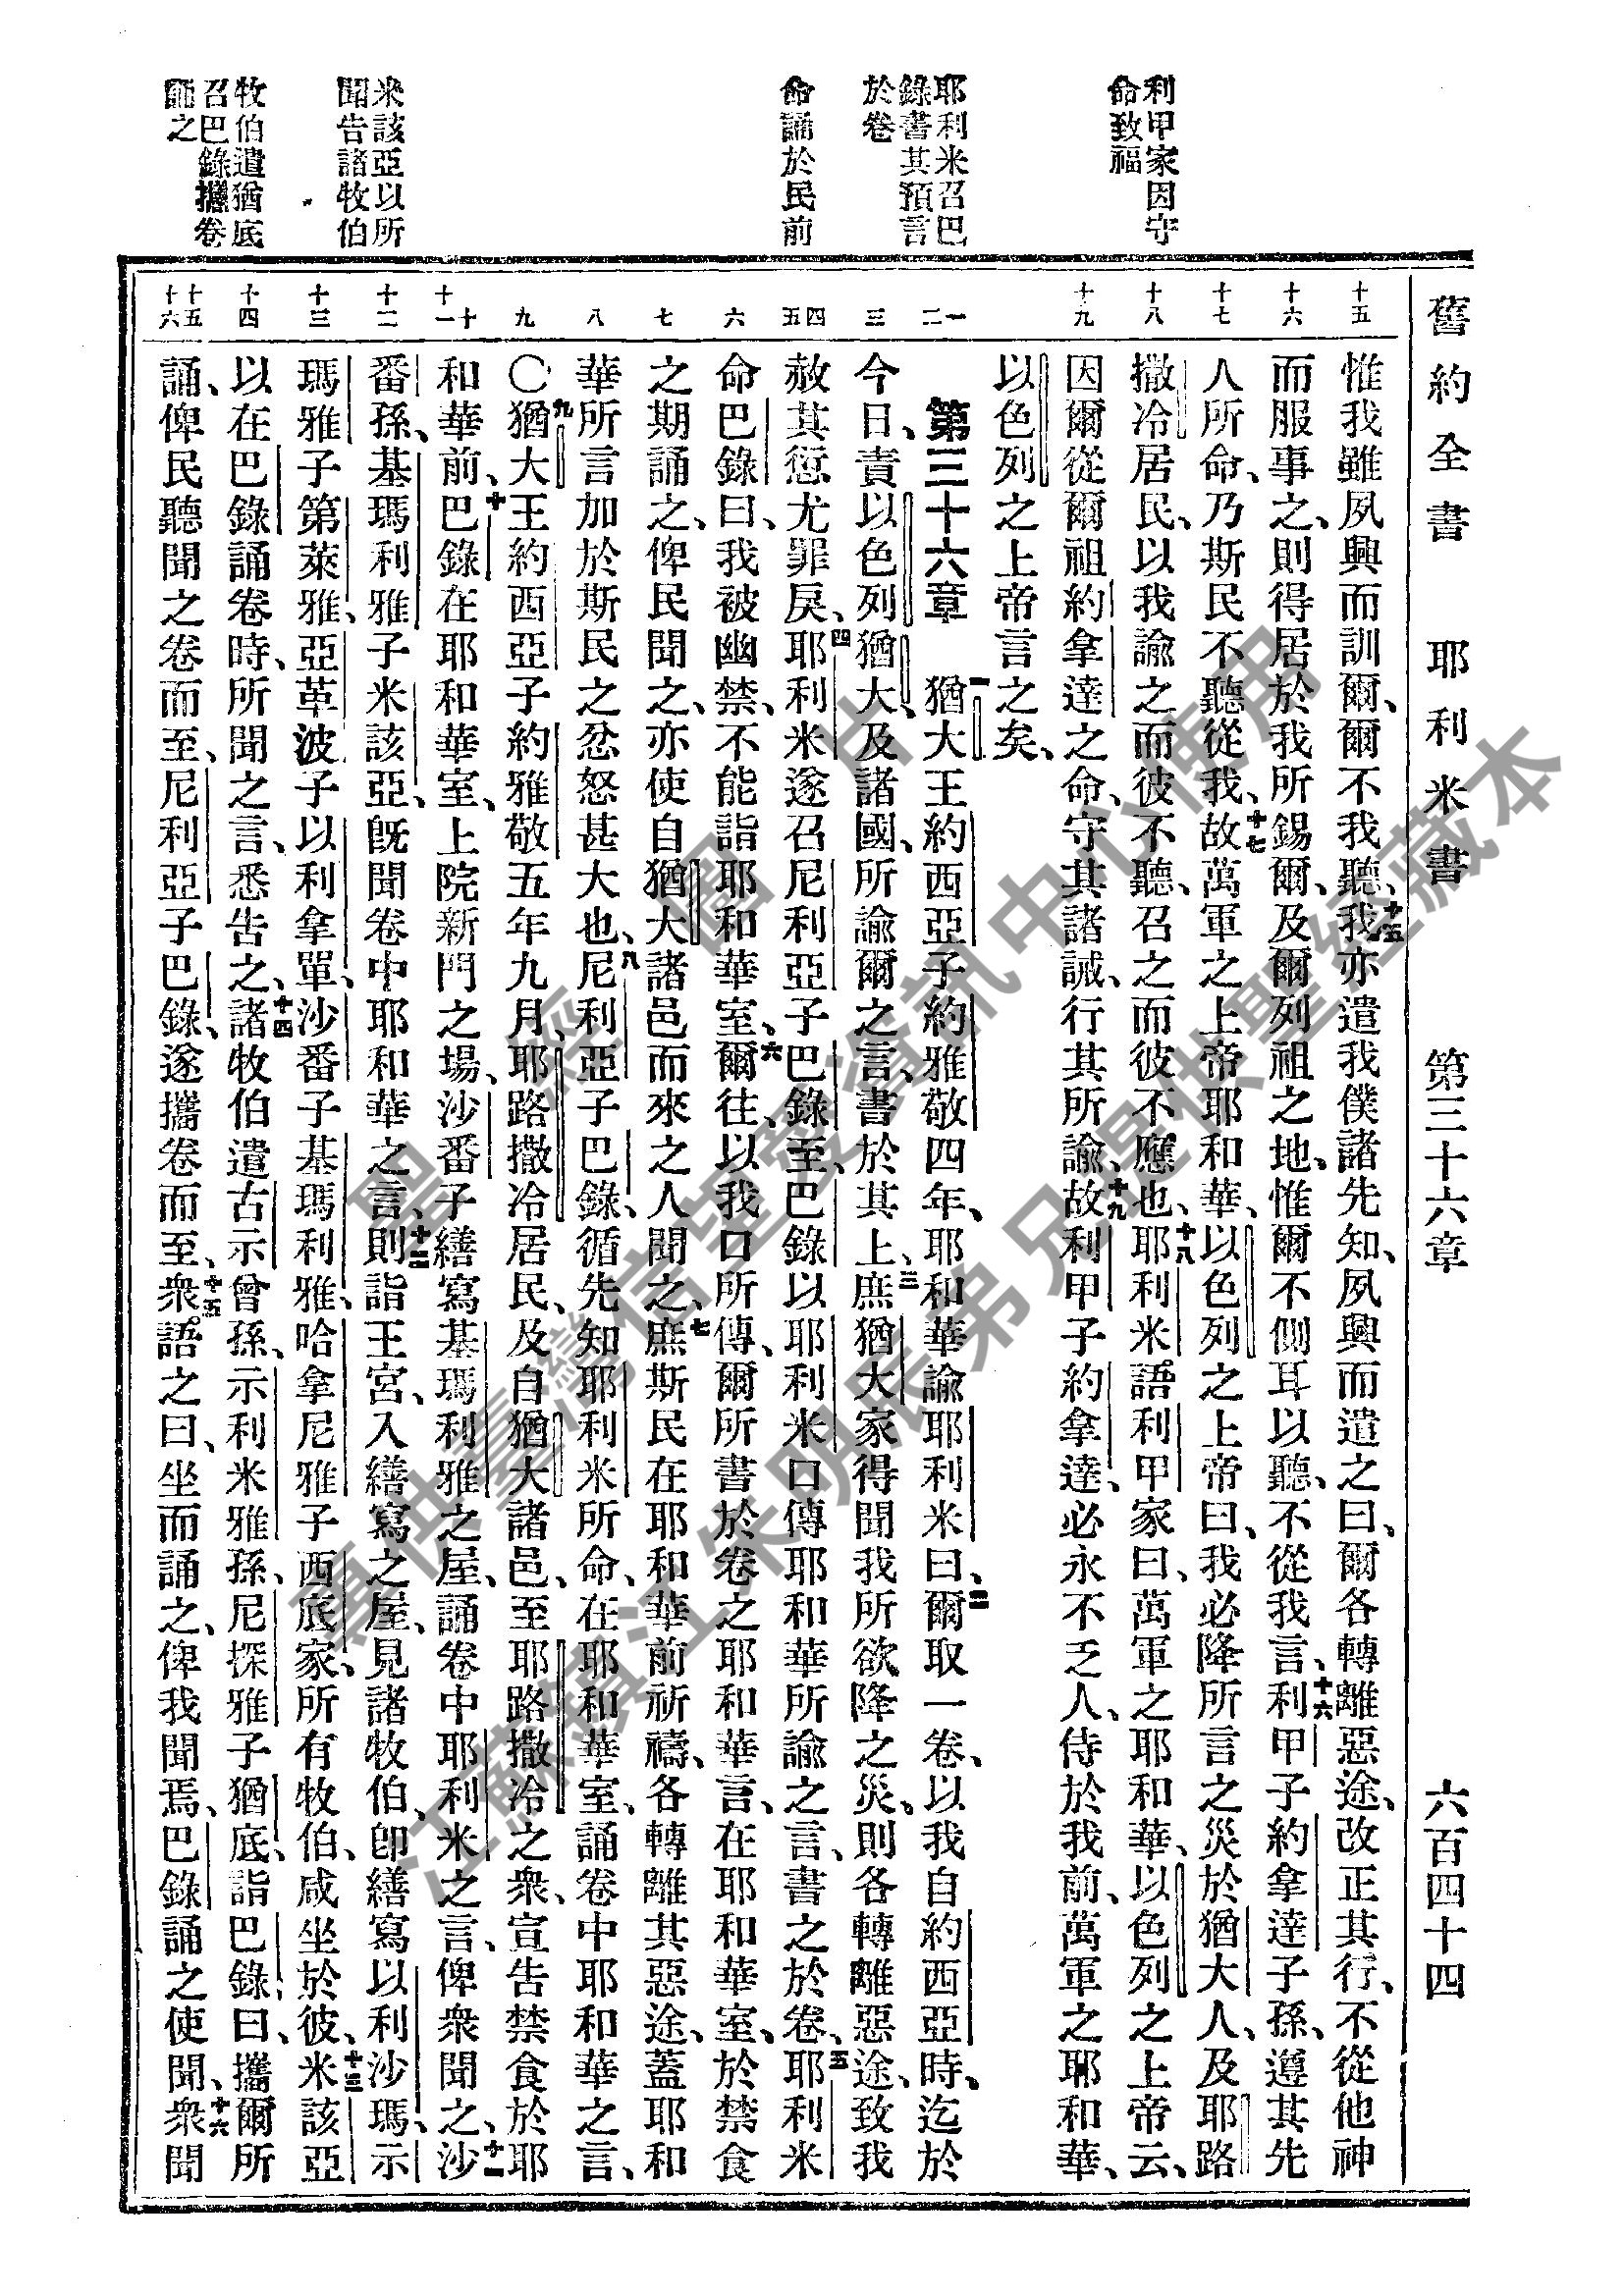 舊約全書　耶利米書　第三十六章　六百四十四
利甲家因守
命致福
耶利米召巴
錄書其預言
於卷
命誦於民前
米該亞以所
聞告諸牧伯
牧伯遣猶底
召巴錄攜卷
誦之
十五
十六
十七
十八
十九
一二
三
四五
六
七
八
九
十十一
十二
十三
十四
十五十六
惟我雖夙興而訓爾、爾不我聽、十五我亦遣我僕諸先知、夙興而遣之曰、爾各轉離惡途、改正其行、不從他神
而服事之、則得居於我所錫爾、及爾列祖之地、惟爾不側耳以聽、不從我言、十六利甲子約拿達子孫、遵其先
人所命、乃斯民不聽從我、十七故萬軍之上帝耶和華、以色列之上帝曰、我必降所言之災於猶大人、及耶路
撒冷居民、以我諭之而彼不聽、召之而彼不應也、十八耶利米語利甲家曰、萬軍之耶和華、以色列之上帝云、
因爾從爾祖約拿達之命、守其諸誡、行其所諭、十九故利甲子約拿達、必永不乏人、侍於我前、萬軍之耶和華、
以色列之上帝言之矣、
第三十六章　一猶大王約西亞子約雅敬四年、耶和華諭耶利米曰、二爾取一卷、以我自約西亞時、迄於
今日、責以色列猶大、及諸國、所諭爾之言、書於其上、三庶猶大家得聞我所欲降之災、則各轉離惡途、致我
赦其愆尤罪戾、四耶利米遂召尼利亞子巴錄至、巴錄以耶利米口傳耶和華所諭之言、書之於卷、五耶利米
命巴錄曰、我被幽禁、不能詣耶和華室、六爾往、以我口所傳、爾所書於卷之耶和華言、在耶和華室、於禁食
之期誦之、俾民聞之、亦使自猶大諸邑而來之人聞之、七庶斯民在耶和華前祈禱、各轉離其惡途、蓋耶和
華所言加於斯民之忿怒甚大也、八尼利亞子巴錄、循先知耶利米所命、在耶和華室、誦卷中耶和華之言、
〇九猶大王約西亞子約雅敬五年九月、耶路撒冷居民、及自猶大諸邑、至耶路撒冷之衆、宣告禁食於耶
和華前、十巴錄在耶和華室、上院新門之場、沙番子繕寫基瑪利雅之屋、誦卷中耶利米之言、俾衆聞之、十一沙
番孫、基瑪利雅子米該亞、旣聞卷中耶和華之言、十二則詣王宮、入繕寫之屋、見諸牧伯、卽繕寫以利沙瑪、示
瑪雅子第萊雅、亞革波子以利拿單、沙番子基瑪利雅、哈拿尼雅子西底家、所有牧伯、咸坐於彼、十三米該亞
以在巴錄誦卷時、所聞之言、悉告之、十四諸牧伯遣古示曾孫、示利米雅孫、尼探雅子猶底、詣巴錄曰、攜爾所
誦、俾民聽聞之卷而至、尼利亞子巴錄、遂攜卷而至、十五衆語之曰、坐而誦之、俾我聞焉、巴錄誦之使聞、十六衆聞
聖經圖片
專供臺灣信望愛資訊中心使用
江蘇鎮江朱明辰弟兄提供聖經藏本